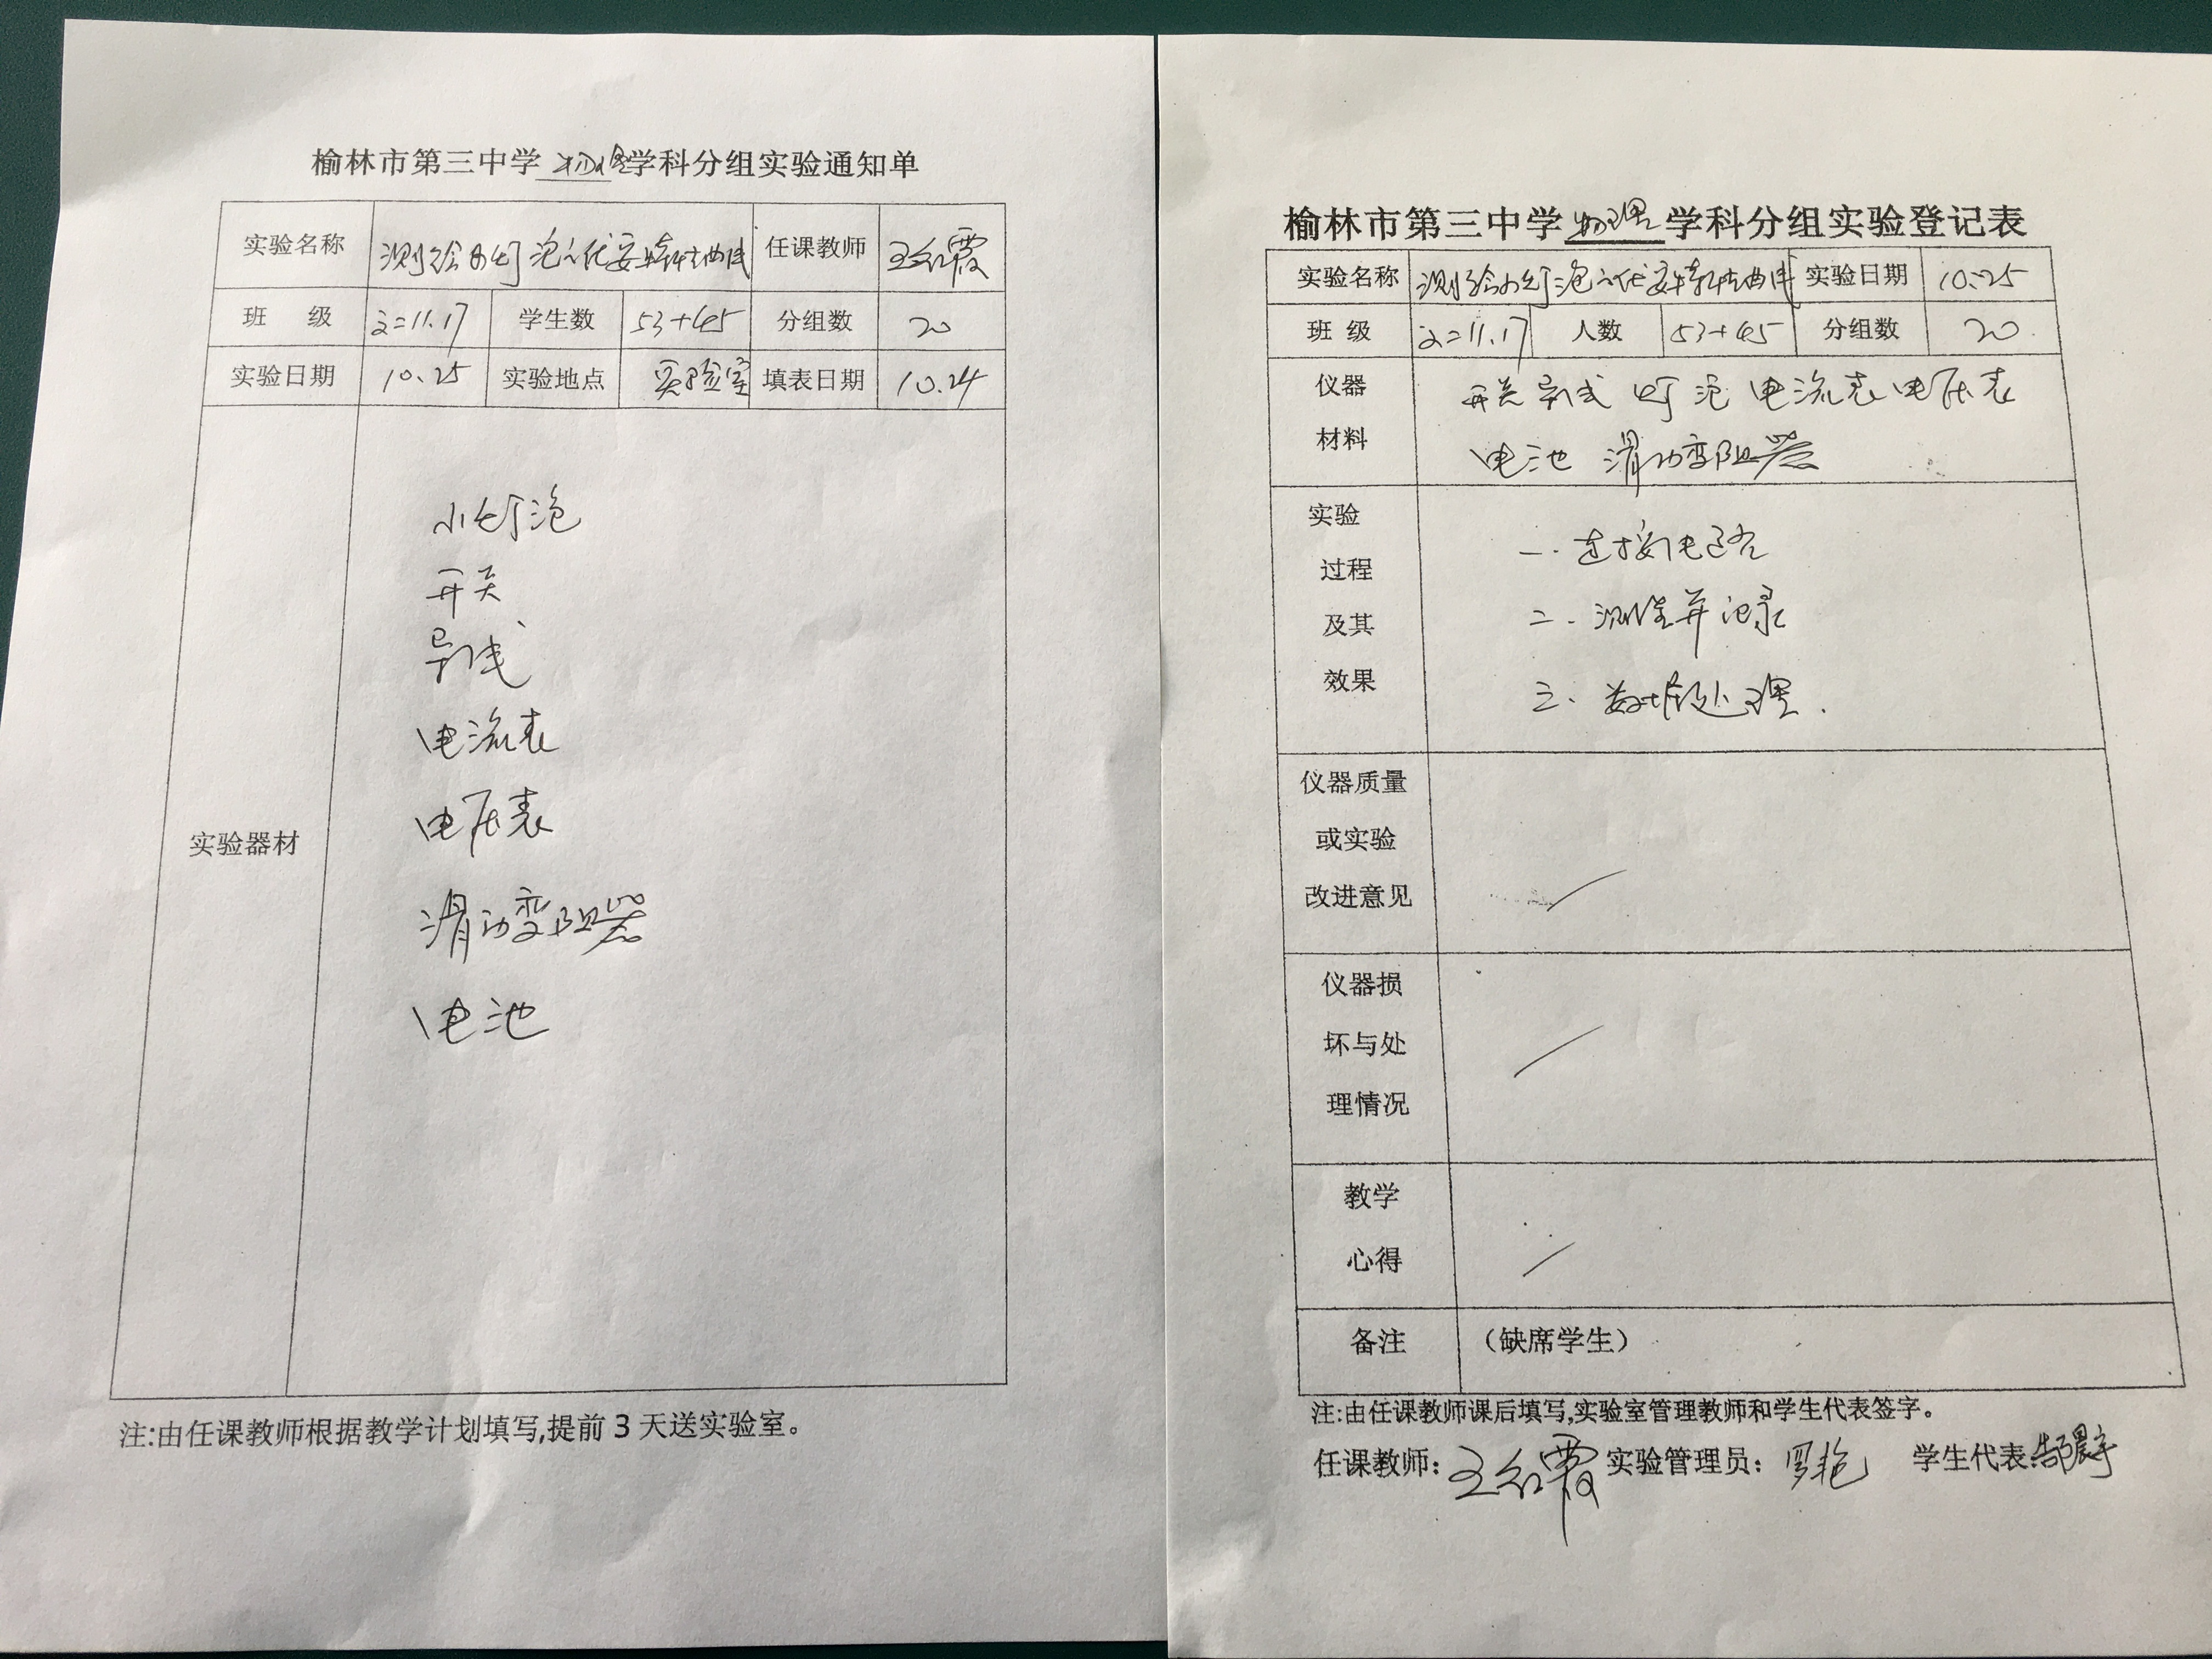 榆林市第三中学物理学科分组实验通知单
实验名称 测绘小灯泡的伏安特性曲线 任课教师 王红霞
班 级 高二11.17 学生数 53+45 分组数 20
实验日期 10.25 实验地点 实验室 填表日期 10.24
实验器材
小灯泡
开关
导线
电流表
电压表
滑动变阻器
电池
注:由任课教师根据教学计划填写,提前3天送实验室。
榆林市第三中学物理学科分组实验登记表
实验名称 测绘小灯泡的伏安特性曲线 实验日期 10.25
班 级 高二11.17 人数 53+45 分组数 20
仪器
材料
开关 导线 灯泡 电流表 电压表
电池 滑动变阻器
实验
过程
及其
效果
一. 连接电路
二. 测量并记录
三. 数据处理.
仪器质量
或实验
改进意见
仪器损
坏与处
理情况
教学
心得
备注 (缺席学生)
注:由任课教师课后填写,实验室管理教师和学生代表签字。
任课教师: 王红霞 实验管理员: 罗艳 学生代表: